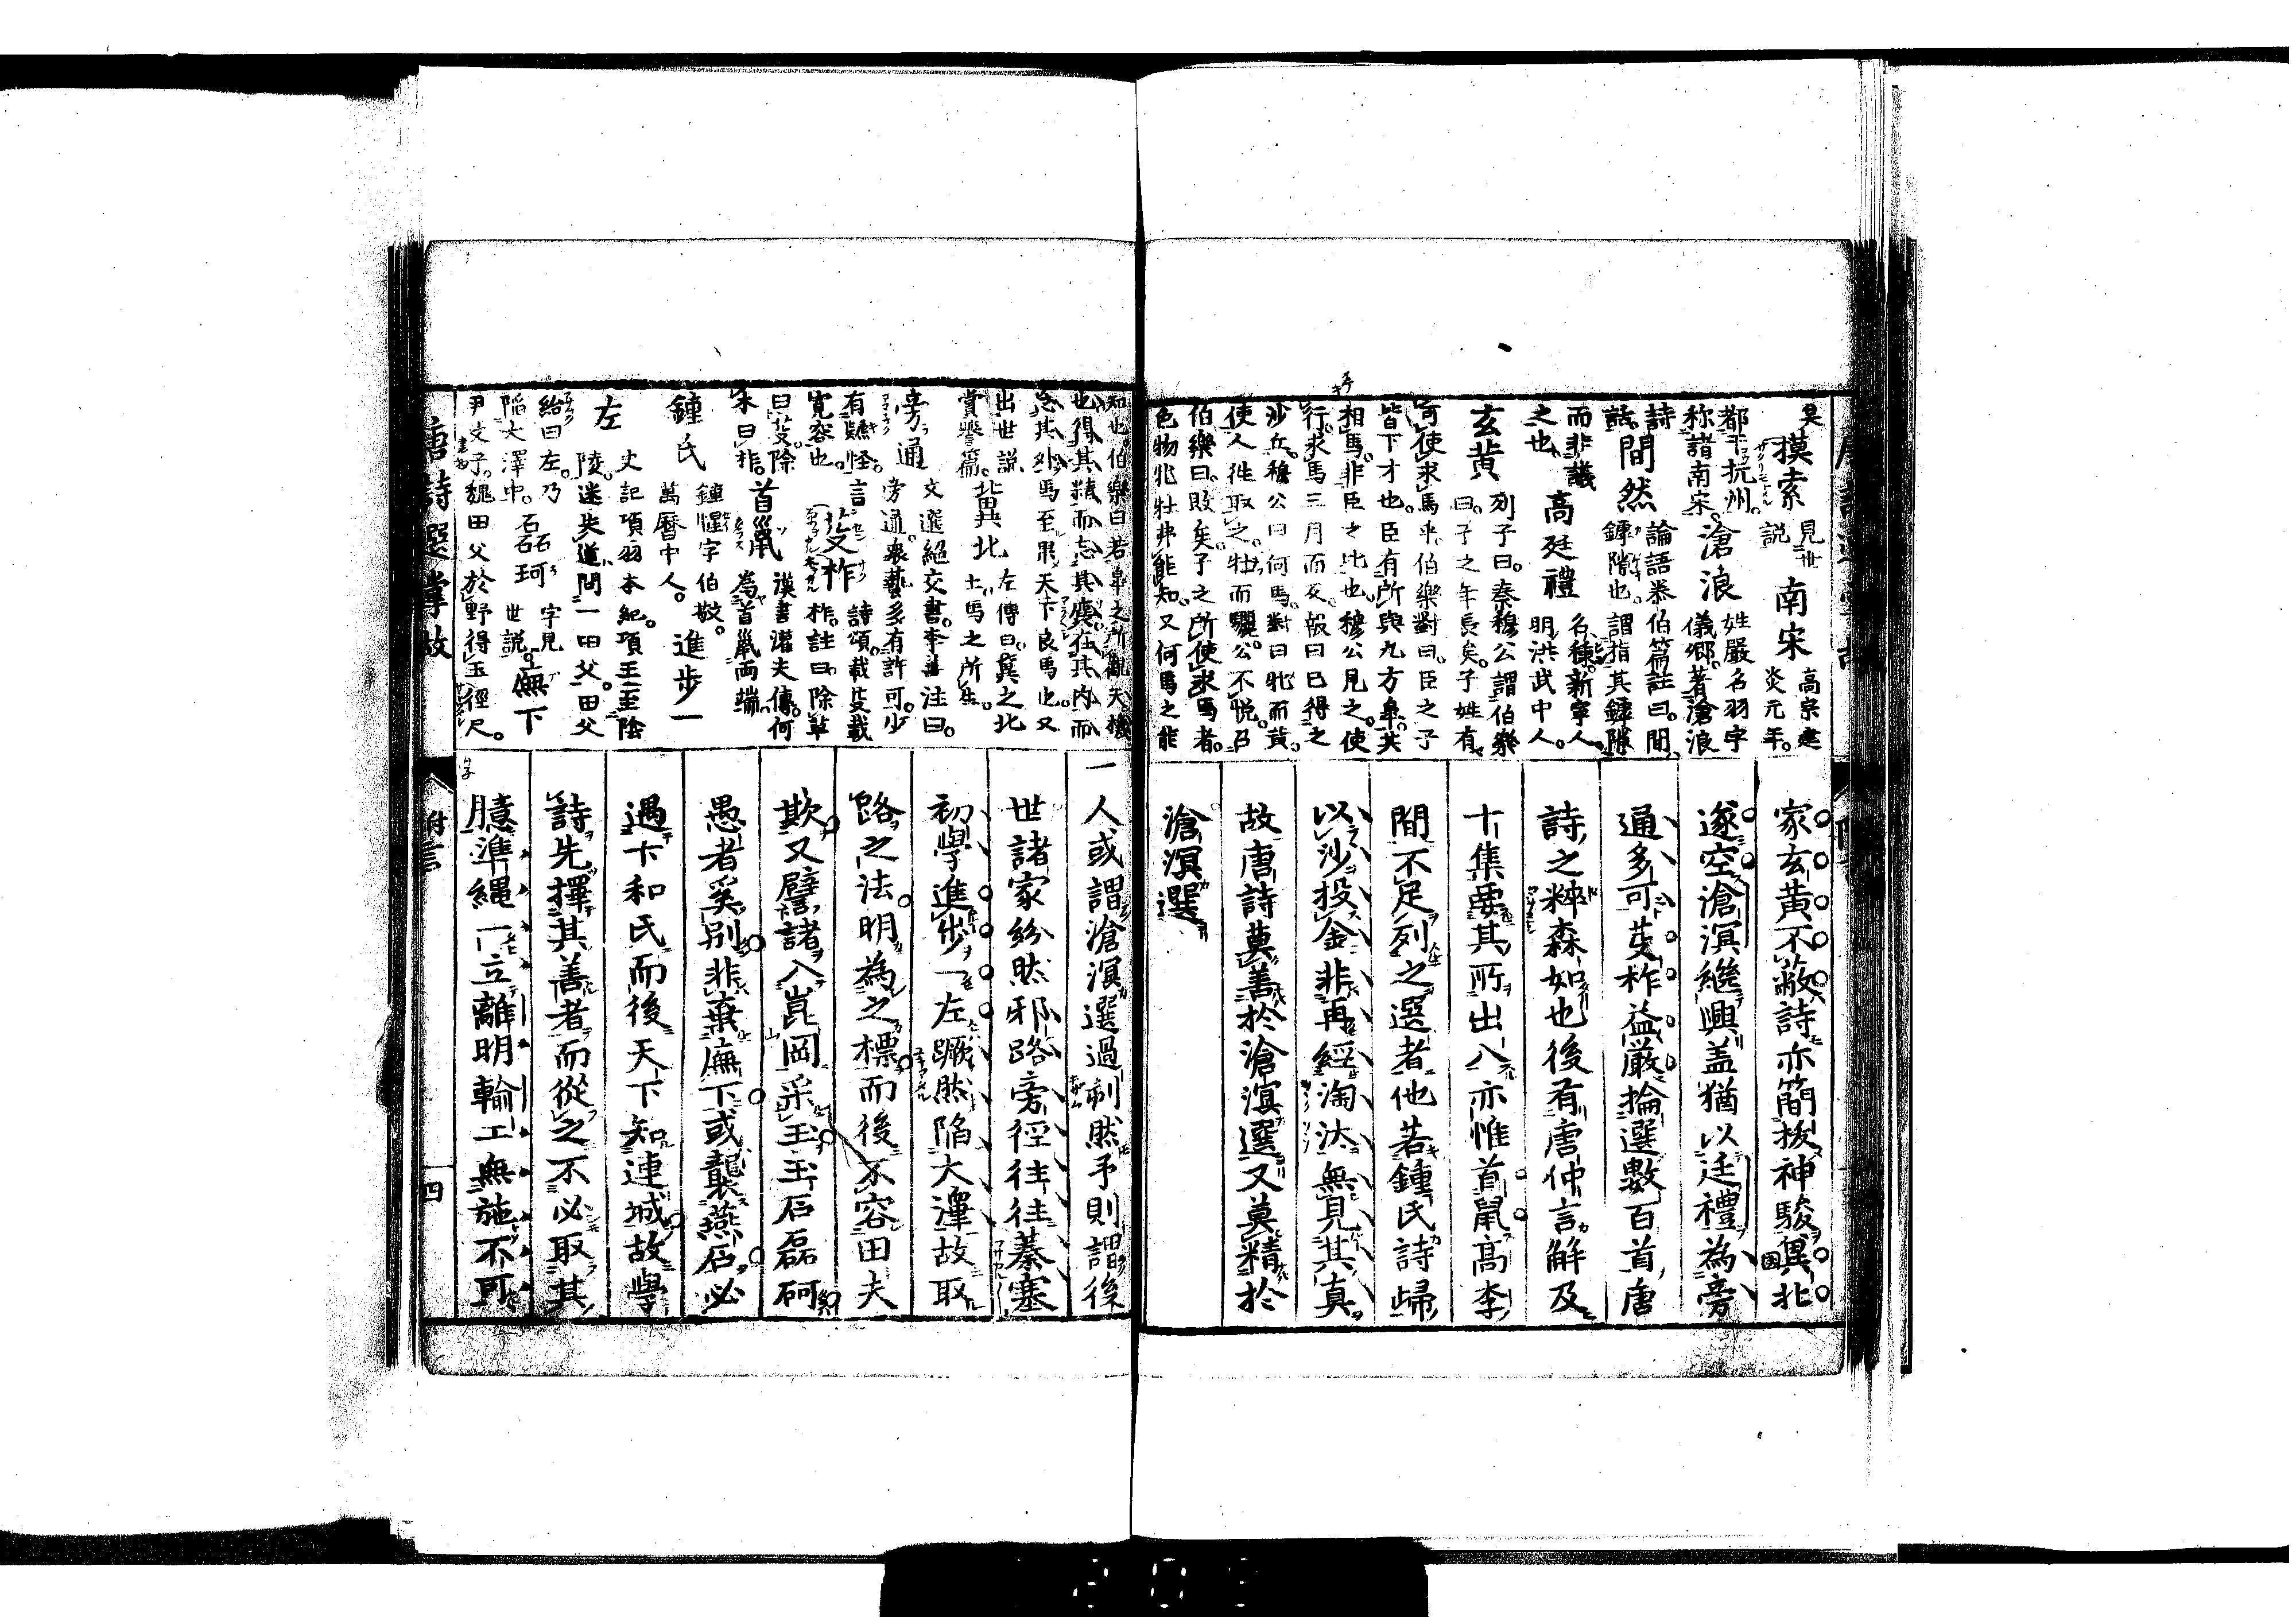 吴
摸索 見世説
南宋 高宗建炎元年。
都于杭州。称諸南宋。
滄浪 姓嚴名羽字儀卿。著滄浪詩話。
間然 論語泰伯篇註曰。間鏬隙也。謂指其鏬隙而非議之也。
高廷禮 名棅。新寧人。明洪武中人。
玄黄 列子曰。秦穆公謂伯樂曰。子之年長矣。子姓有
可使求馬乎。伯樂對曰。臣之子
皆下才也。臣有所與九方皐。其
相馬。非臣之比也。穆公見之。使
行求馬。三月而反。報曰已得之
沙丘。穆公曰何馬。對曰牝而黄。
使人徃取之。牡而驪。公不悦。召
伯樂曰。敗矣。子之所使求馬者。
色物牝牡弗能知。又何馬之能
家玄黄不蔽詩亦簡拔神駿兾北
遂空滄溟繼興盖猶以廷禮為旁
通多可芟柞益嚴掄選數百首唐
詩之粹森如也後有唐仲言解及
十集要其所出入亦惟首鼠髙李
間不足列之選者他若鍾氏詩歸
以沙投金非再經淘汰無見其真
故唐詩莫善於滄溟選又莫精於
滄溟選
知也。伯樂曰若皐之所觀天機
也。得其精而忘其麤。在其内而
忘其外。馬至果天下良馬也。又
出世説賞譽篇。
兾北 左傳曰。兾之北土。馬之所生。
旁通 文選絶交書。李善注曰。旁通衆藝。多有許可。少有疑怪。言寛容也。
芟柞 詩頌。載芟載柞。註曰。除草曰芟。除木曰柞。
首鼠 漢書灌夫傳。何為首鼠両端。
鍾氏 鍾惺字伯敬。萬暦中人。
進歩一左 史記項羽本紀。項王至陰陵。迷失道。問一田父。田父紿曰左。乃陷大澤中。
磊砢 字見世説。
廡下 尹文子。魏田父於野得玉徑尺。
唐詩選掌故
附言
四
一人或謂滄溟選過刻然予則謂後
世諸家紛然邪路旁徑往往蓁塞
初學進歩一左蹶然陷大澤故取
路之法明為之標而後不容田夫
欺又譬諸入崑岡采玉玉石磊砢
愚者奚別非棄廡下或襲燕石必
遇卞和氏而後天下知連城故學
詩先擇其善者而從之不必取其
臆準繩一立離明輸工無施不可